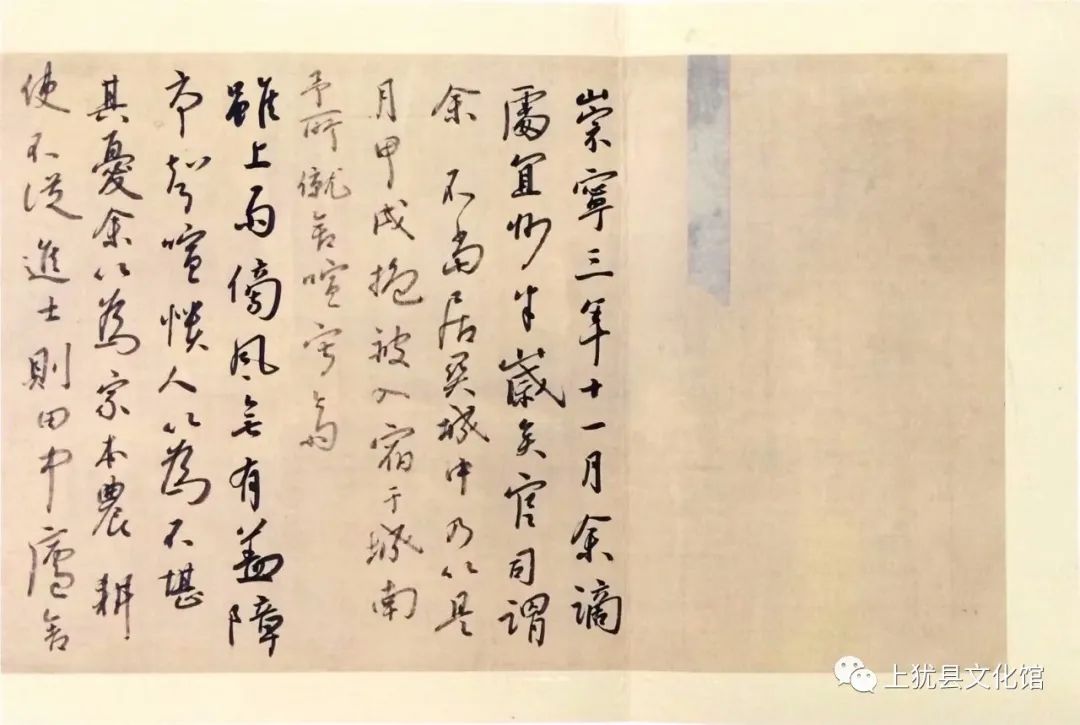 崇寧三年十一月余謫
處宜州半歲矣官司謂
余不當居關城中乃以是
月甲戌抱被入宿于城南
予所僦舍喧寂齋
雖上雨傍風無有蓋障
市聲喧憒人以為不堪
其憂余以為家本農耕
使不從進士則田中廬舍
上犹县文化馆